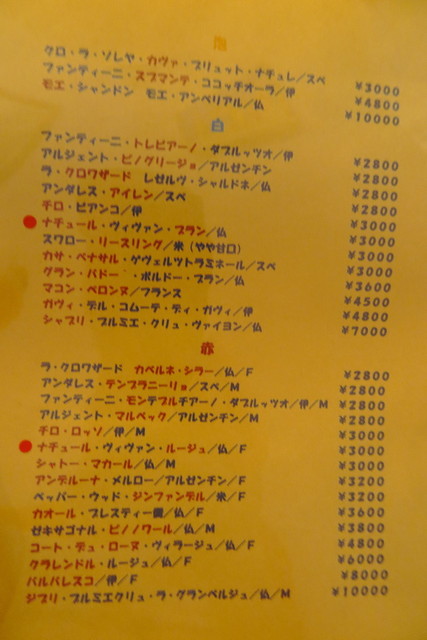 泡
クロ・ラ・ソレヤ・カヴァ・ブリュット・ナチュレ／スペ ¥3000
ファンティーニ・スプマンテ・ココッチオーラ／伊 ¥4800
モエ・シャンドン モエ・アンペリアル／仏 ¥10000
白
ファンティーニ・トレビアーノ・ダブルッツオ／伊 ¥2800
アルジェント・ピノグリージョ／アルゼンチン ¥2800
ラ・クロワザード レゼルヴ・シャルドネ／仏 ¥2800
アンダレス・アイレン／スペ ¥2800
チロ・ビアンコ／伊 ¥3000
ナチュール・ヴィヴァン・ブラン／仏 ¥3000
スワロー・リースリング／米（やや甘口） ¥3000
カサ・ベナサル・ゲヴェルツトラミネール／スペ ¥3000
グラン・バドー・・ボルドー・ブラン／仏 ¥3600
マコン・ペロンヌ／フランス ¥4500
ガヴィ・デル・コムーテ・ディ・ガヴィ／伊 ¥4800
シャブリ・プルミエ・クリュ・ヴァイヨン／仏 ¥7000
赤
ラ・クロワザード カベルネ・シラー／仏／F ¥2800
アンダレス・テンプラニーリョ／スペ／M ¥2800
ファンティーニ・モンテプルチアーノ・ダブルッツオ／伊／M ¥2800
アルジェント・マルベック／アルゼンチン／M ¥2800
チロ・ロッソ／伊／M ¥3000
ナチュール・ヴィヴァン・ルージュ／仏／F ¥3000
シャトー・マカール／仏／M ¥3000
アンデルーナ・メルロー／アルゼンチン／F ¥3200
ペッパー・ウッド・ジンファンデル／米／F ¥3200
カオール・プレスティージ／仏／F ¥3600
ゼキサゴナル・ピノノワール／仏／M ¥3800
コート・デュ・ローヌ・ヴィラージュ／仏／F ¥4800
クラレンドル・ルージュ／仏／F ¥6000
バルバレスコ／伊／F ¥8000
ジブリ・プルミエクリュ・ラ・グランベルジュ／仏／M ¥10000